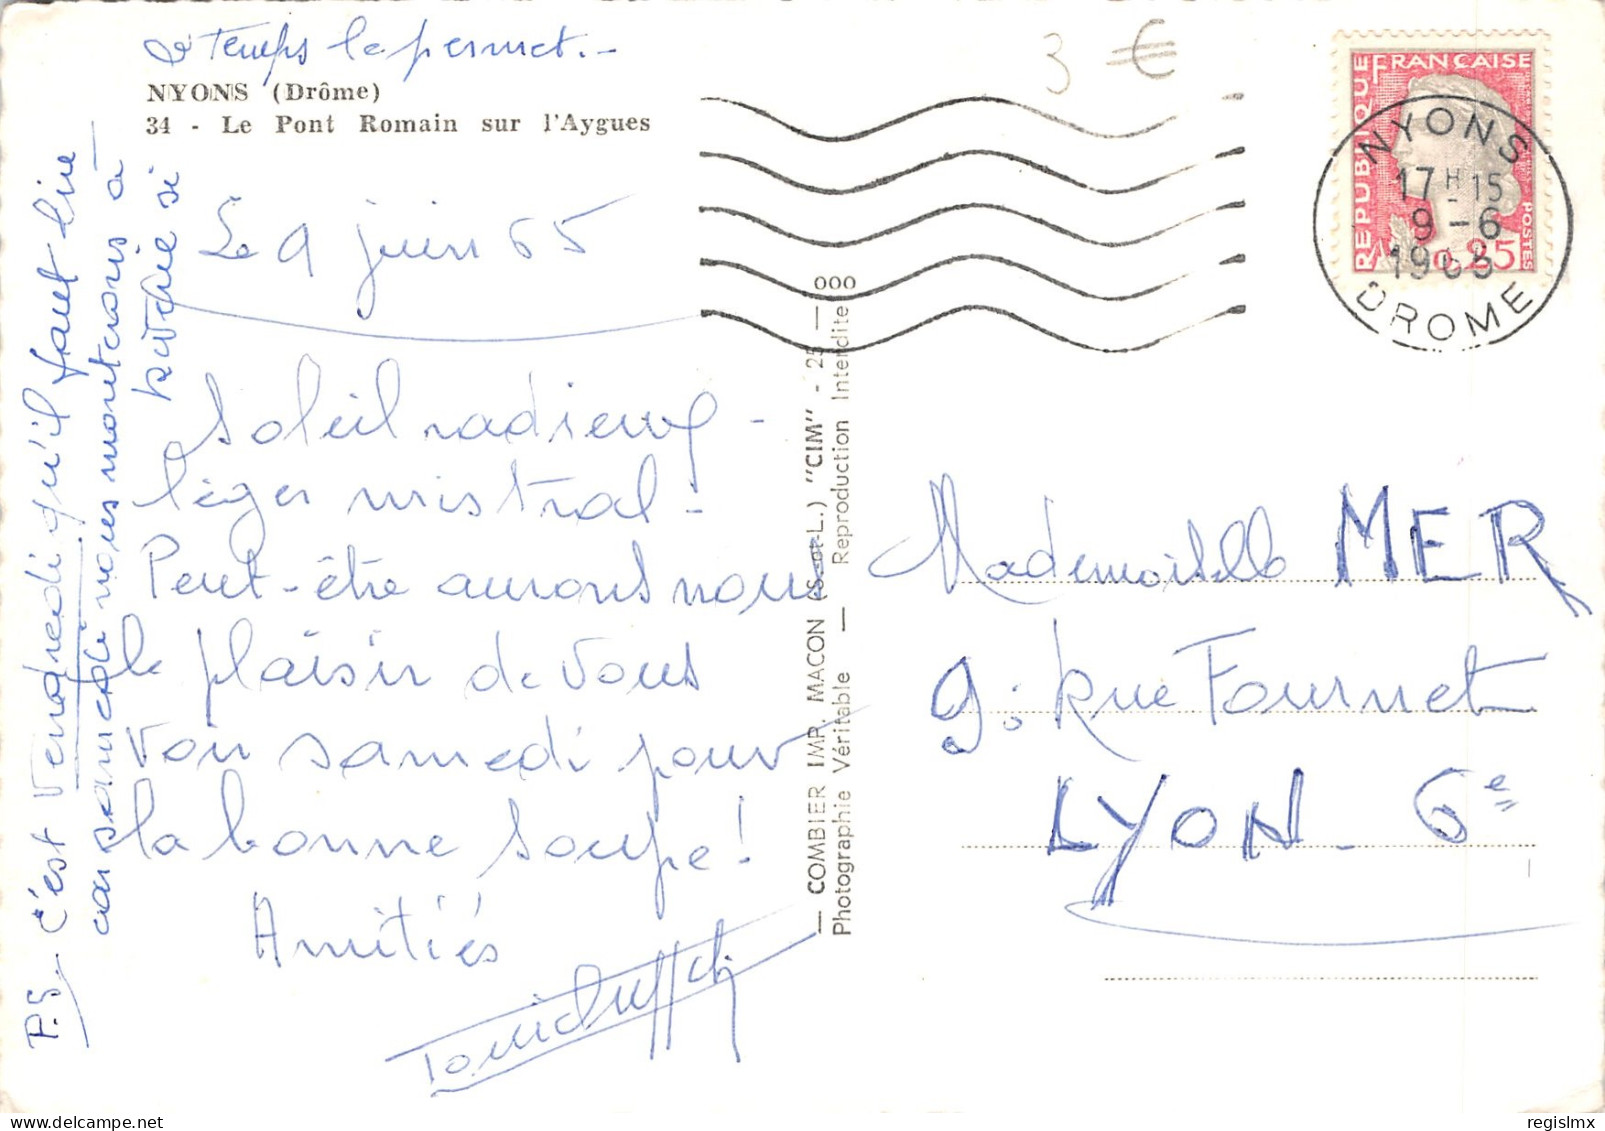 le Temps le permet.-
NYONS (Drôme)
34 - Le Pont Romain sur l'Aygues
3 €
REPUBLIQUE FRANÇAISE
POSTES
0,25
NYONS
17H15
9-6
1965
DROME
Le 9 juin 65
Soleil radieux -
léger mistral -
Peut-être aurons nous
le plaisir de vous
voir samedi pour
la bonne soupe!
Amitiés
P.S. - C'est Vendredi qu'il faut lire
car samedi nous monterons à
si
000
— COMBIER IMP. MACON (S.-et-L.) "CIM" - 25 —
Photographie Véritable — Reproduction Interdite
Mademoiselle MER
9. Rue Fournet
LYON - 6e
regislmx